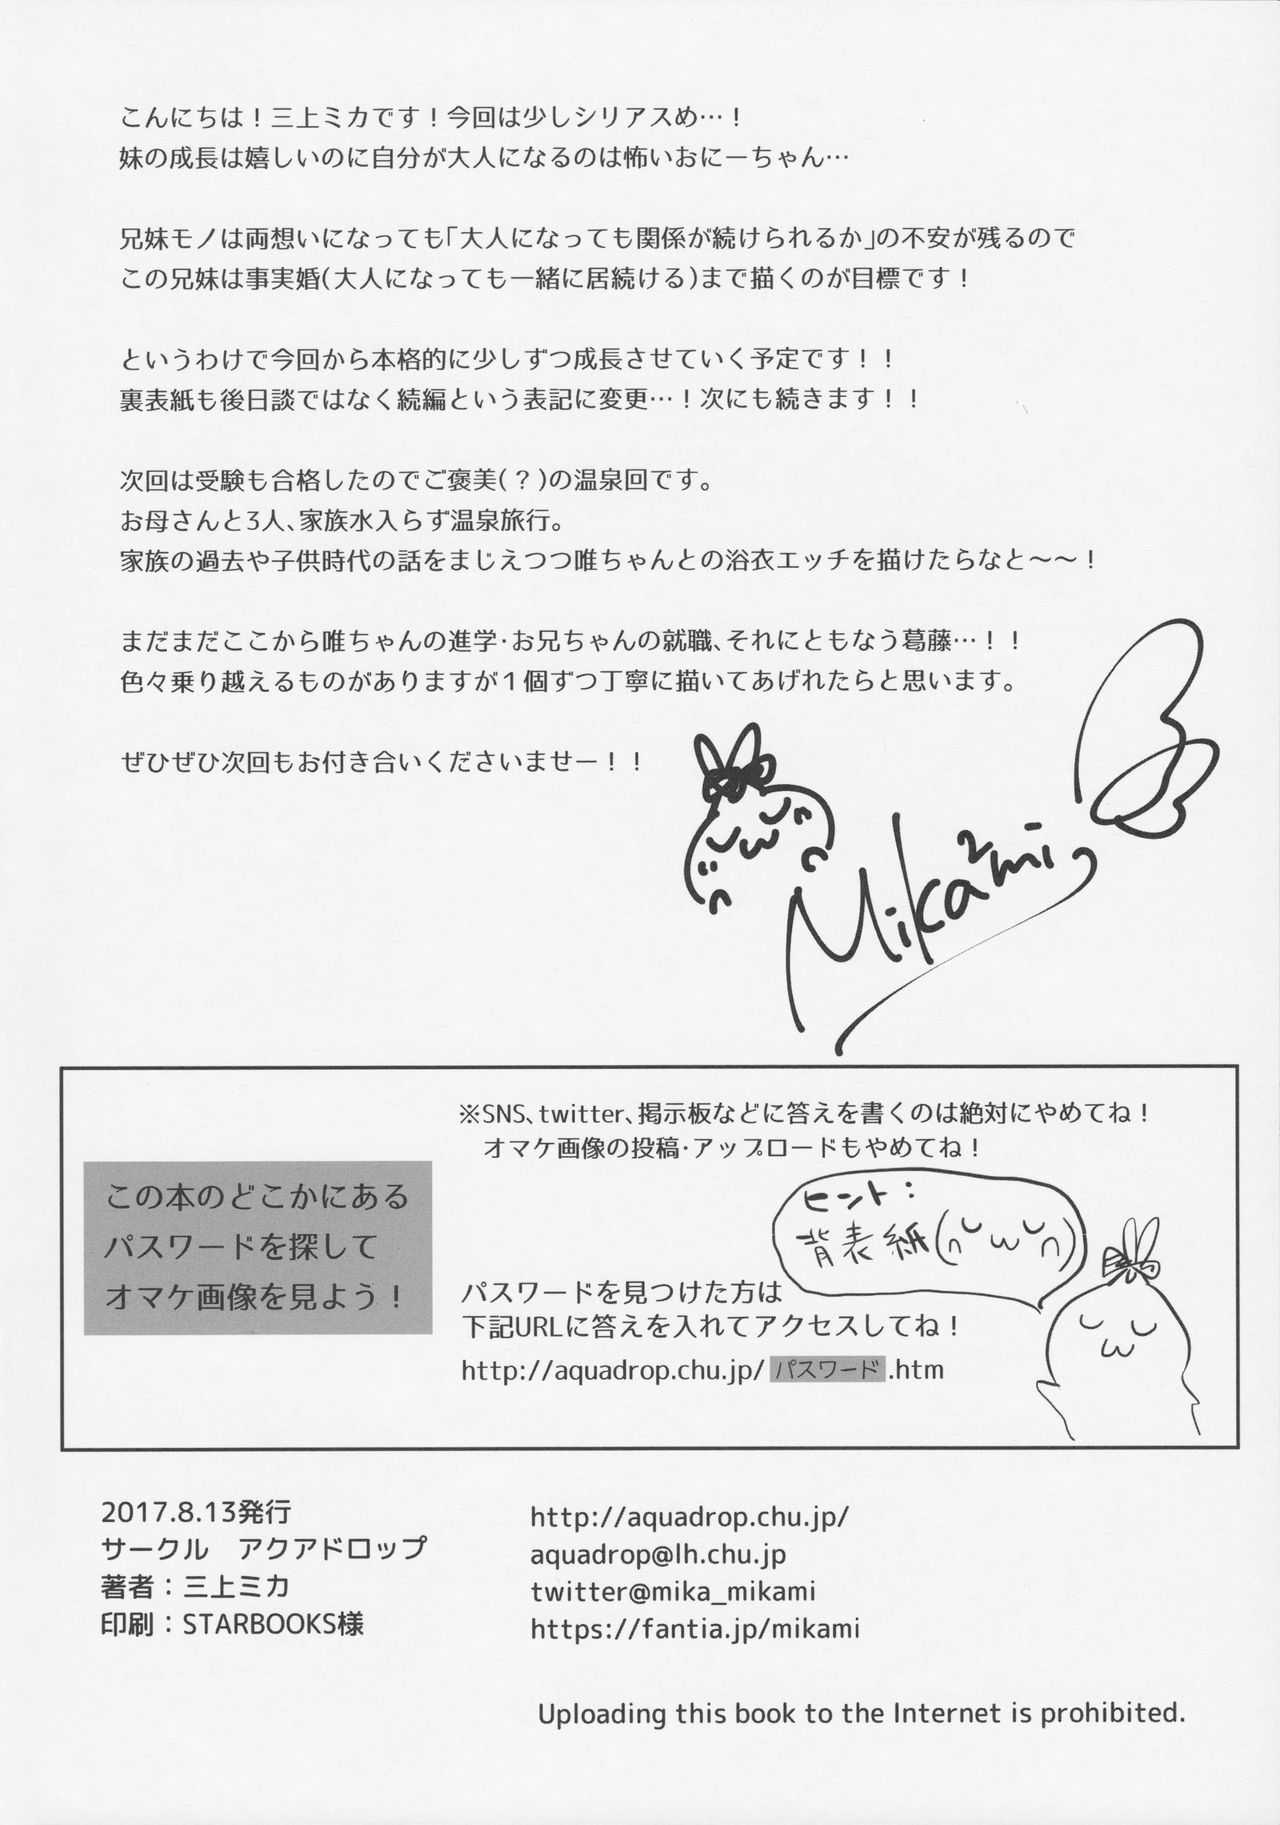 こんにちは！三上ミカです！今回は少しシリアスめ…！
妹の成長は嬉しいのに自分が大人になるのは怖いおにーちゃん…
兄妹モノは両想いになっても「大人になっても関係が続けられるか」の不安が残るので
この兄妹は事実婚(大人になっても一緒に居続ける)まで描くのが目標です！
というわけで今回から本格的に少しずつ成長させていく予定です！！
裏表紙も後日談ではなく続編という表記に変更…！次にも続きます！！
次回は受験も合格したのでご褒美(？)の温泉回です。
お母さんと3人、家族水入らず温泉旅行。
家族の過去や子供時代の話をまじえつつ唯ちゃんとの浴衣エッチを描けたらなと～～！
まだまだここから唯ちゃんの進学・お兄ちゃんの就職、それにともなう葛藤…！！
色々乗り越えるものがありますが１個ずつ丁寧に描いてあげれたらと思います。
ぜひぜひ次回もお付き合いくださいませー！！
Mika2mi
※SNS、twitter、掲示板などに答えを書くのは絶対にやめてね！
オマケ画像の投稿・アップロードもやめてね！
この本のどこかにある
パスワードを探して
オマケ画像を見よう！
ヒント：
背表紙
パスワードを見つけた方は
下記URLに答えを入れてアクセスしてね！
http://aquadrop.chu.jp/パスワード.htm
2017.8.13発行
サークル　アクアドロップ
著者：三上ミカ
印刷：STARBOOKS様
http://aquadrop.chu.jp/
aquadrop@lh.chu.jp
twitter@mika_mikami
https://fantia.jp/mikami
Uploading this book to the Internet is prohibited.